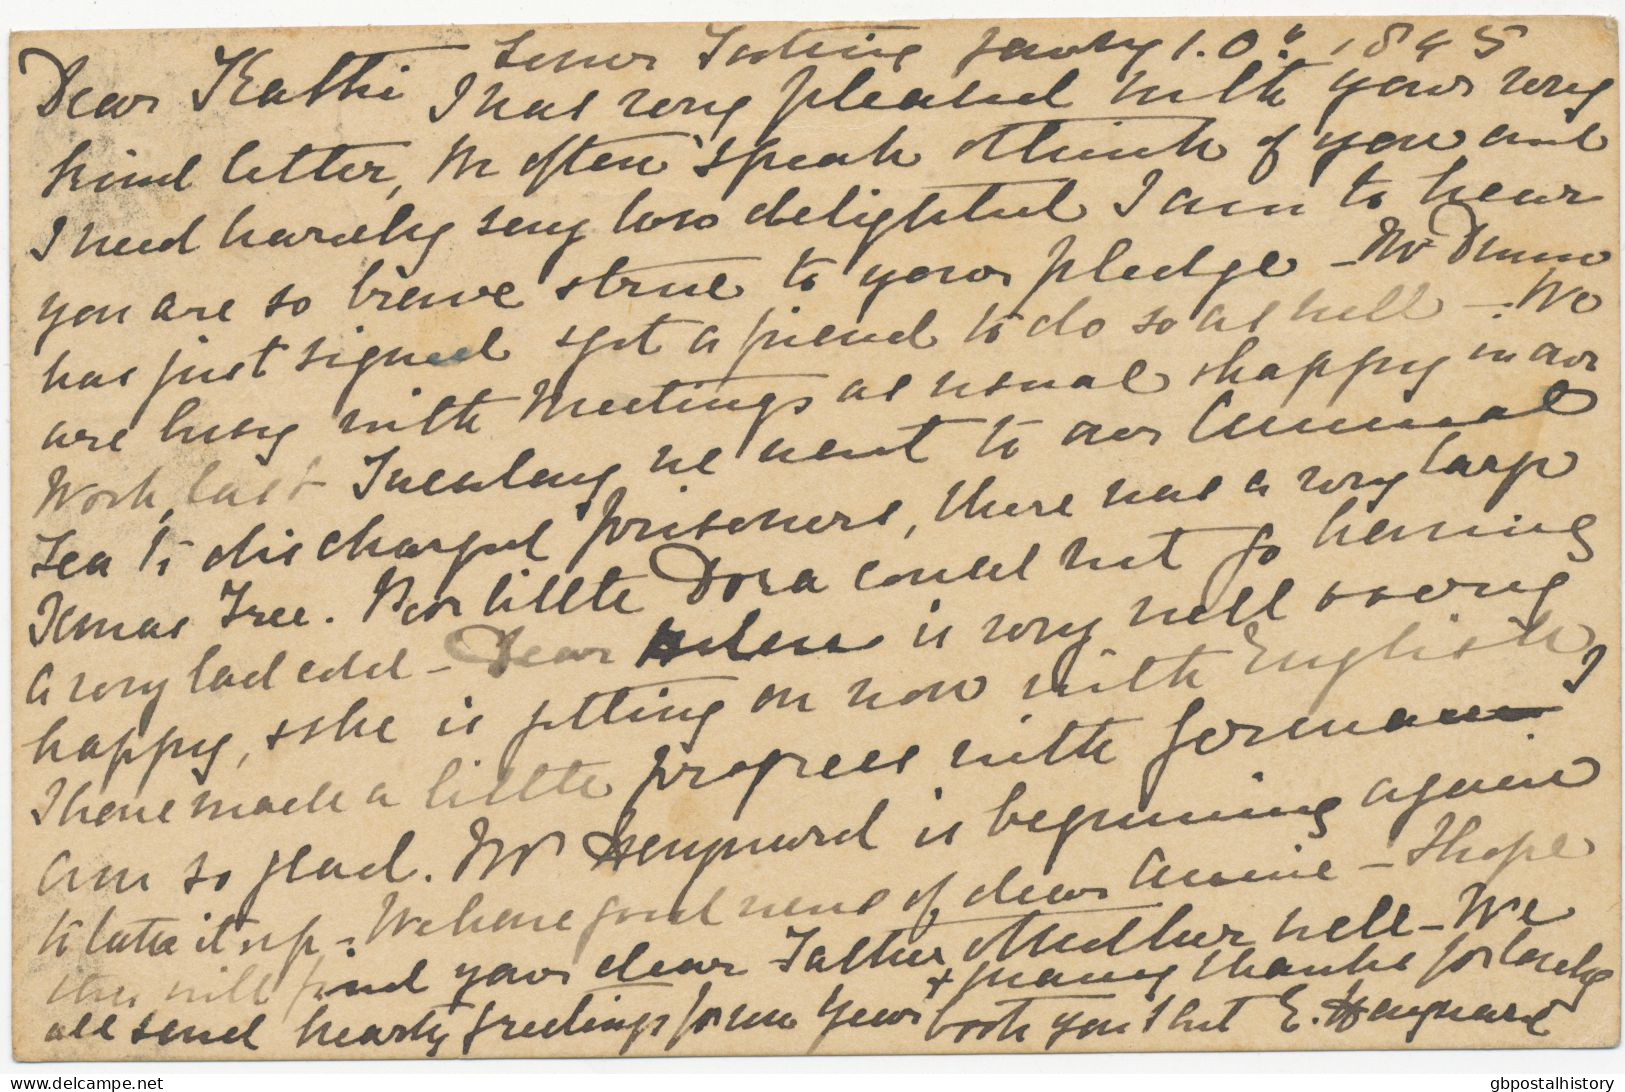 Lower Tooting Janry 10th 1895
Dear Kathi I was very pleased with your very
kind letter, We often speak & think of you and
I need hardly say how delighted I am to hear
you are so brave & true to your pledge - Mr
has just signed & got a friend to do so as well - We
are busy with Meetings as usual & happy in our
Work, last Tuesday we went to our Annual
Tea to discharged prisoners, there was a very large
Xmas Tree. Poor little Dora could not go having
a very bad cold - Dear Helene is very well & very
happy, & she is getting on now with English,
I have made a little progress with German I
am so glad. Mr Hayward is beginning again
to take it up - We have good news of dear Annie - I hope
this will find your dear Father & Mother well - We
all send hearty greetings for New Year & many thanks for lovely
book you sent E. Hayward
gbpostalhistory
www.delcampe.net